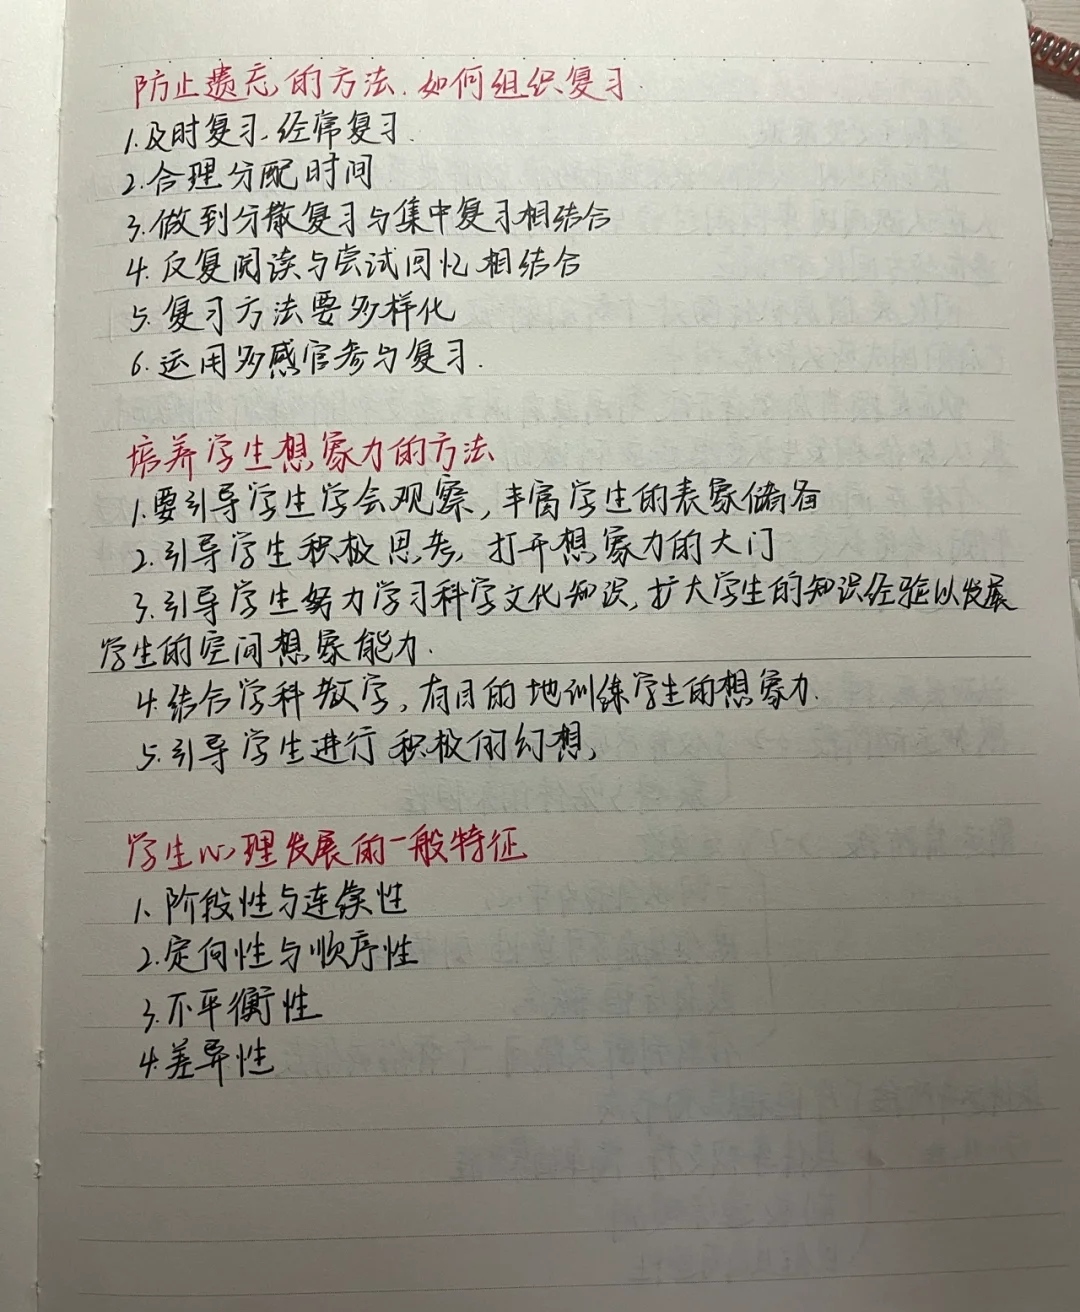 防止遗忘的方法.如何组织复习.
1.及时复习、经常复习.
2.合理分配时间
3.做到分散复习与集中复习相结合
4.反复阅读与尝试回忆相结合
5.复习方法要多样化
6.运用多感官参与复习.
培养学生想象力的方法
1.要引导学生学会观察,丰富学生的表象储备
2.引导学生积极思考,打开想象力的大门
3.引导学生努力学习科学文化知识,扩大学生的知识经验以发展
学生的空间想象能力.
4.结合学科教学,有目的地训练学生的想象力.
5.引导学生进行积极的幻想,
学生心理发展的一般特征
1、阶段性与连续性
2.定向性与顺序性
3.不平衡性
4.差异性